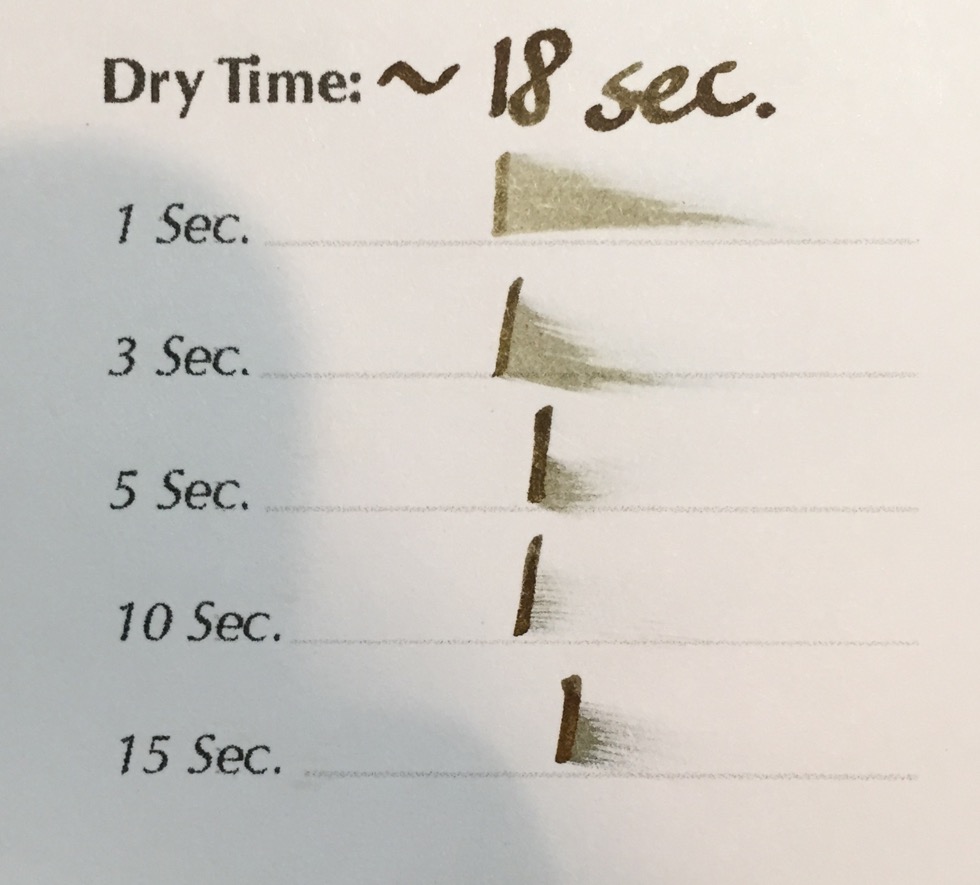 Dry Time: ~ 18 sec.
1 Sec.
3 Sec.
5 Sec.
10 Sec.
15 Sec.